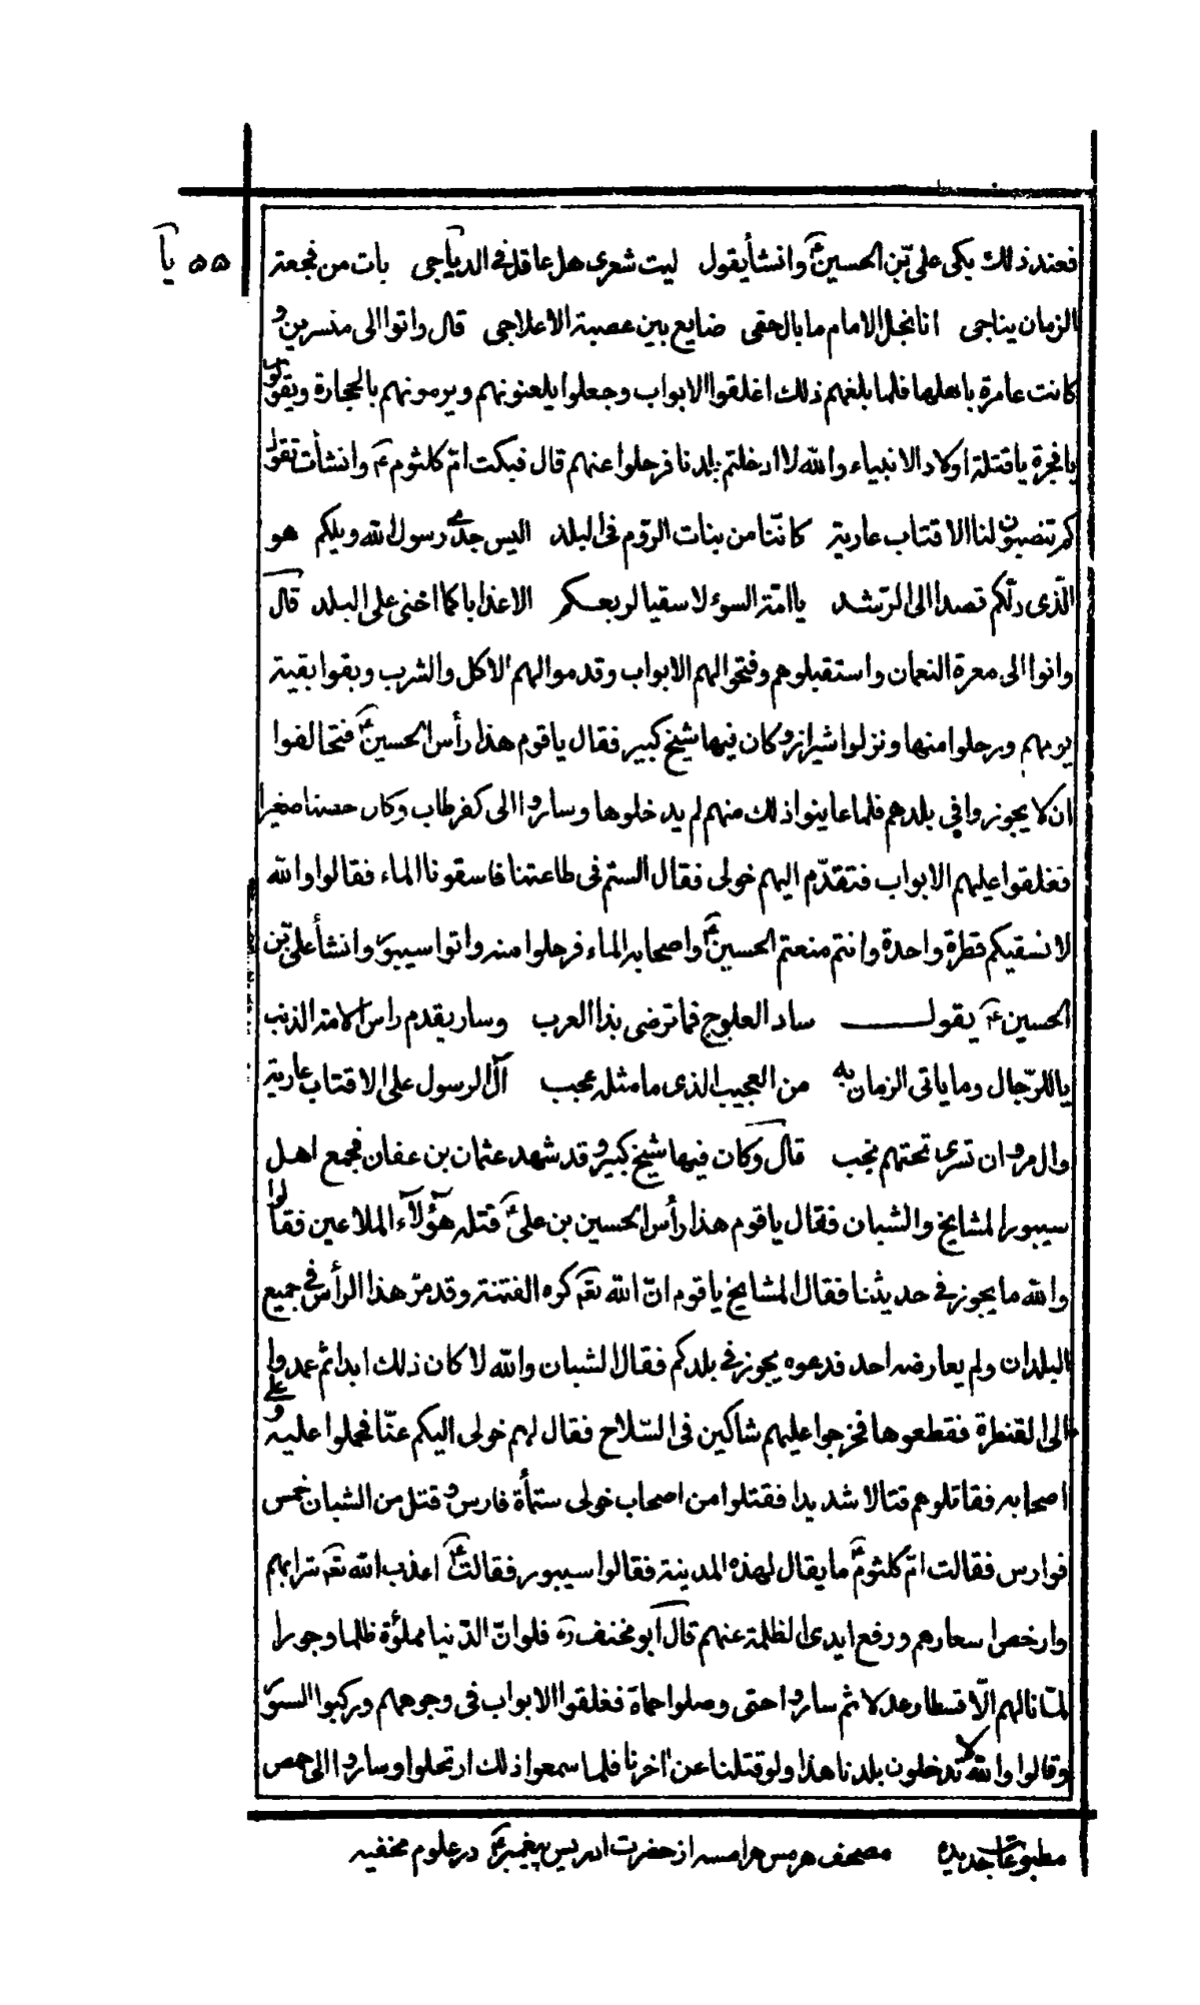 ۵۵ يا
فعند ذلك بكى علىّ بن الحسينؑ وانشأ يقول ليت شعرى هل عاقل فى الدياجى بات من فجعة
الزمان يناجى انا نجل الامام ما بال حقى ضايع بين عصبة الاعلاجى قال واتوا الى منسرين و
كانت عامرة باهلها فلما بلغهم ذلك اغلقوا الابواب وجعلوا يلعنونهم ويرمونهم بالحجارة ويقولون
يا فجرة يا قتلة اولاد الانبياء والله لا ادخلتم بلدنا فرحلوا عنهم قال فبكت امّ كلثومؑ وانشأت تقول
كم تنصبون لنا الاقتاب عارية كاننّا من بنات الروم فى البلد اليس جدى رسول الله ويلكم هو
الّذى دلّكم قصدا الى الرّشد يا امّة السوء لا سقيا لربعكم الا عذابا كما اخنى على البلد قال
واتوا الى معرة النعمان واستقبلوهم وفتحوا لهم الابواب وقدموا لهم الاكل والشرب وبقوا بقية
يومهم ورحلوا منها ونزلوا شيراز وكان فيها شيخ كبير فقال يا قوم هذا رأس الحسينؑ فتحالفوا
ان لا يجوزوا فى بلدهم فلما عاينوا ذلك منهم لم يدخلوها وساروا الى كفرطاب وكان حصنا صغيرا
فغلقوا عليهم الابواب فتقدّم اليهم خولى فقال الستم فى طاعتنا فاسقونا الماء فقالوا والله
لا نسقيكم قطرة واحدة وانتم منعتم الحسينؑ واصحابه الماء فرحلوا منه واتوا سيبور وانشأ علىّ بن
الحسينؑ يقول ساد العلوج فما ترضى بذا العرب وسار يقدم راس الامة الذنب
يا للرّجال وما ياتى الزمان به من العجيب الذى ما مثله عجب آل الرسول على الاقتاب عارية
وال مروان تسرى تحتهم نجب قال وكان فيها شيخ كبير وقد شهد عثمان بن عفان فجمع اهل
سيبور المشايخ والشبان فقال يا قوم هذا رأس الحسين بن علىؑ قتله هؤلآء الملاعين فقالوا
والله ما يجوز فى حديثنا فقال المشايخ يا قوم انّ الله تعم كره الفتنة وقد مرّ هذا الرأس فى جميع
البلدان ولم يعارضه احد فدعوه يجوز فى بلدكم فقال الشبان والله لا كان ذلك ابدا ثم عدوا
الى القنطرة فقطعوها فخرجوا عليهم شاكين فى السّلاح فقال لهم خولى اليكم عنّا فحملوا عليه وعلى
اصحابه فقاتلوهم قتالا شديدا فقتلوا من اصحاب خولى ستمأة فارس وقتل من الشبان خمس
فوارس فقالت امّ كلثومؑ ما يقال لهذه المدينة فقالوا سيبور فقالتؑ اعذب الله تعم شرابهم
وارخص اسعارهم ورفع ايدى الظلمة عنهم قال ابو مخنف ره فلو انّ الدّنيا مملؤة ظلما وجورا
لمّا نالهم الّا قسطا وعدلا ثم ساروا حتى وصلوا حماة فغلقوا الابواب فى وجوههم وركبوا السور
وقالوا والله لا تدخلون بلدنا هذا ولو قتلنا عن اخرنا فلما سمعوا ذلك ارتحلوا وساروا الى حمص
مطبوعات جديده مصحف هرمس هرامسه از حضرت ادريس پيغمبرؑ در علوم مخفيه